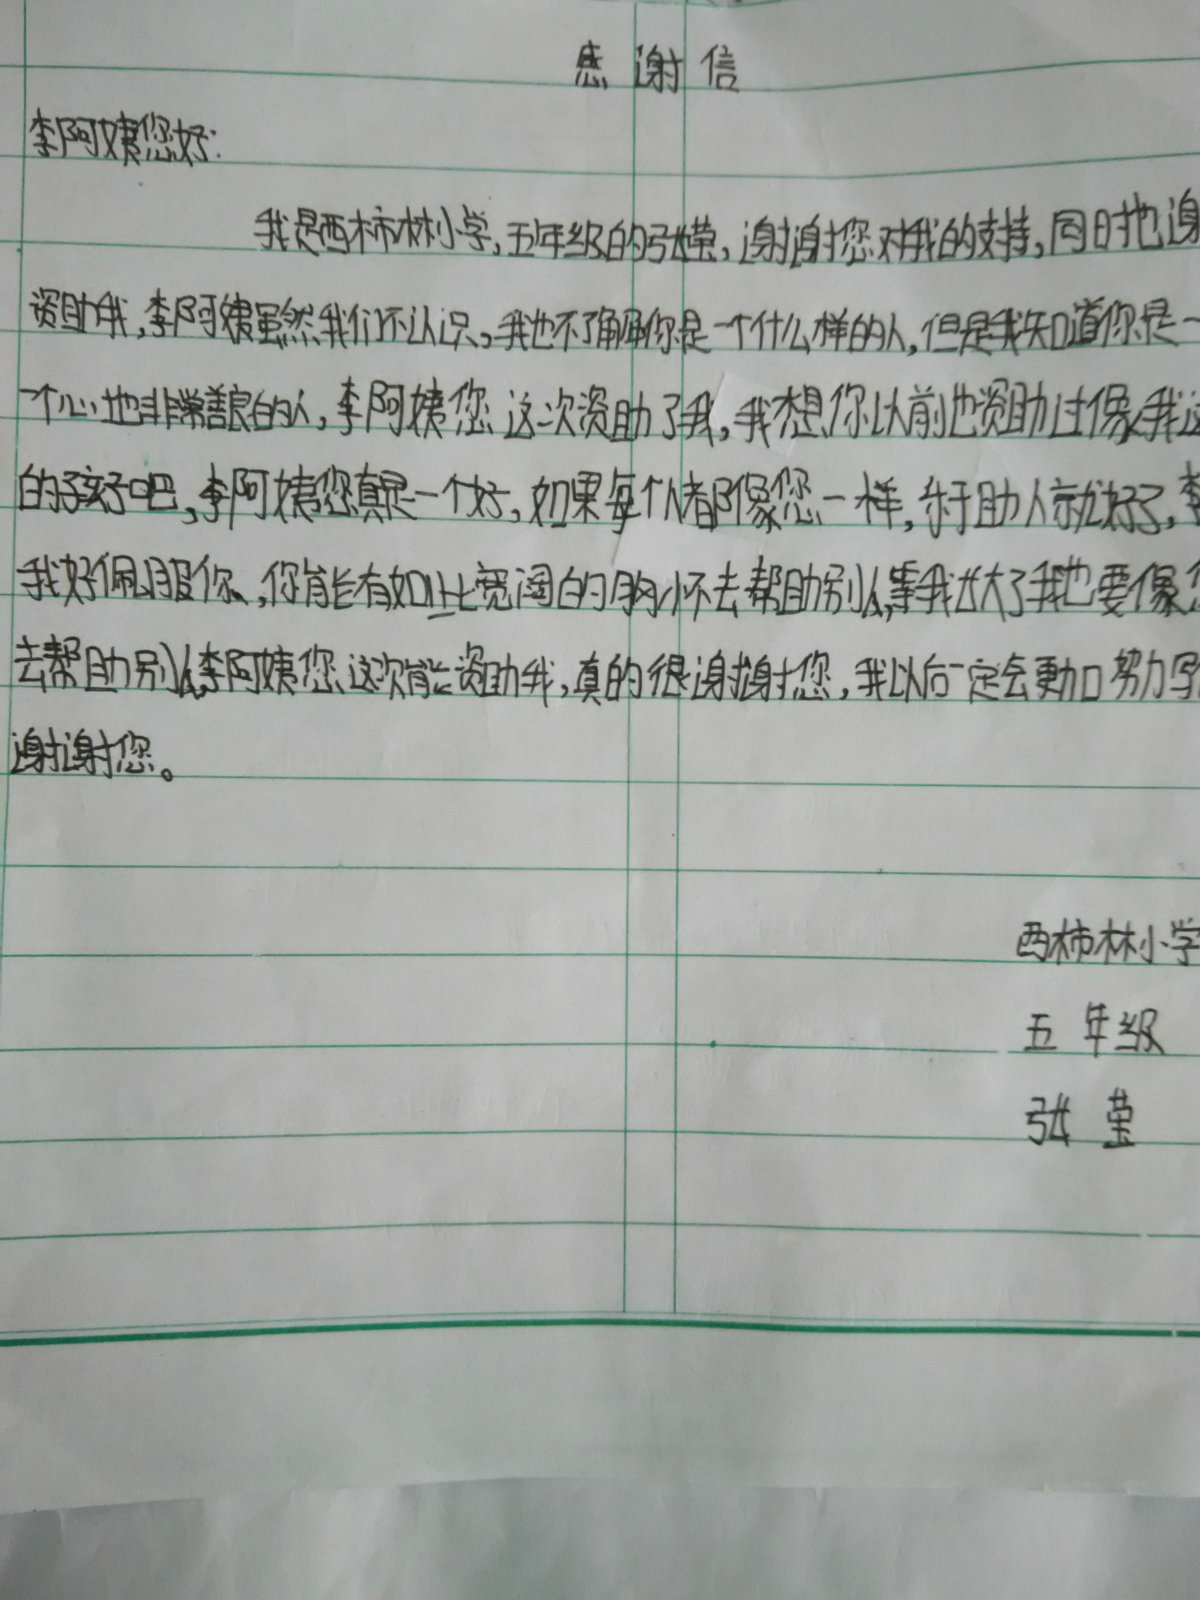 感谢信
李阿姨您好:
我是西柿林小学,五年级的张莹,谢谢您对我的支持,同时也谢
资助我,李阿姨虽然我们不认识,我也不了解你是一个什么样的人,但是我知道你是一
个心地非常善良的人,李阿姨您这次资助了我,我想你以前也资助过像我这
的孩子吧,李阿姨您真是一个好,如果每个人都像您一样,乐于助人就好了,李
我好佩服你,你能有如此宽阔的胸怀去帮助别人,等我长大了我也要像您
去帮助别人,李阿姨您这次能资助我,真的很谢谢您,我以后一定会更加努力学
谢谢您。
西柿林小学
五年级
张莹